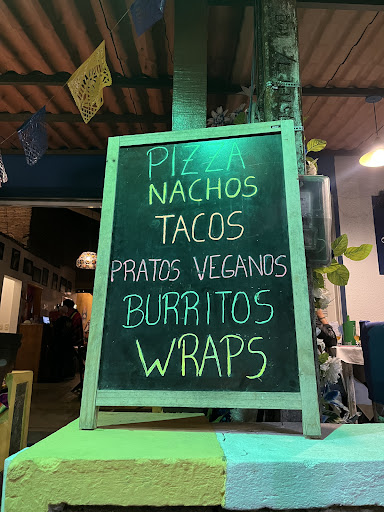 PIZZA
NACHOS
TACOS
PRATOS VEGANOS
BURRITOS
WRAPS